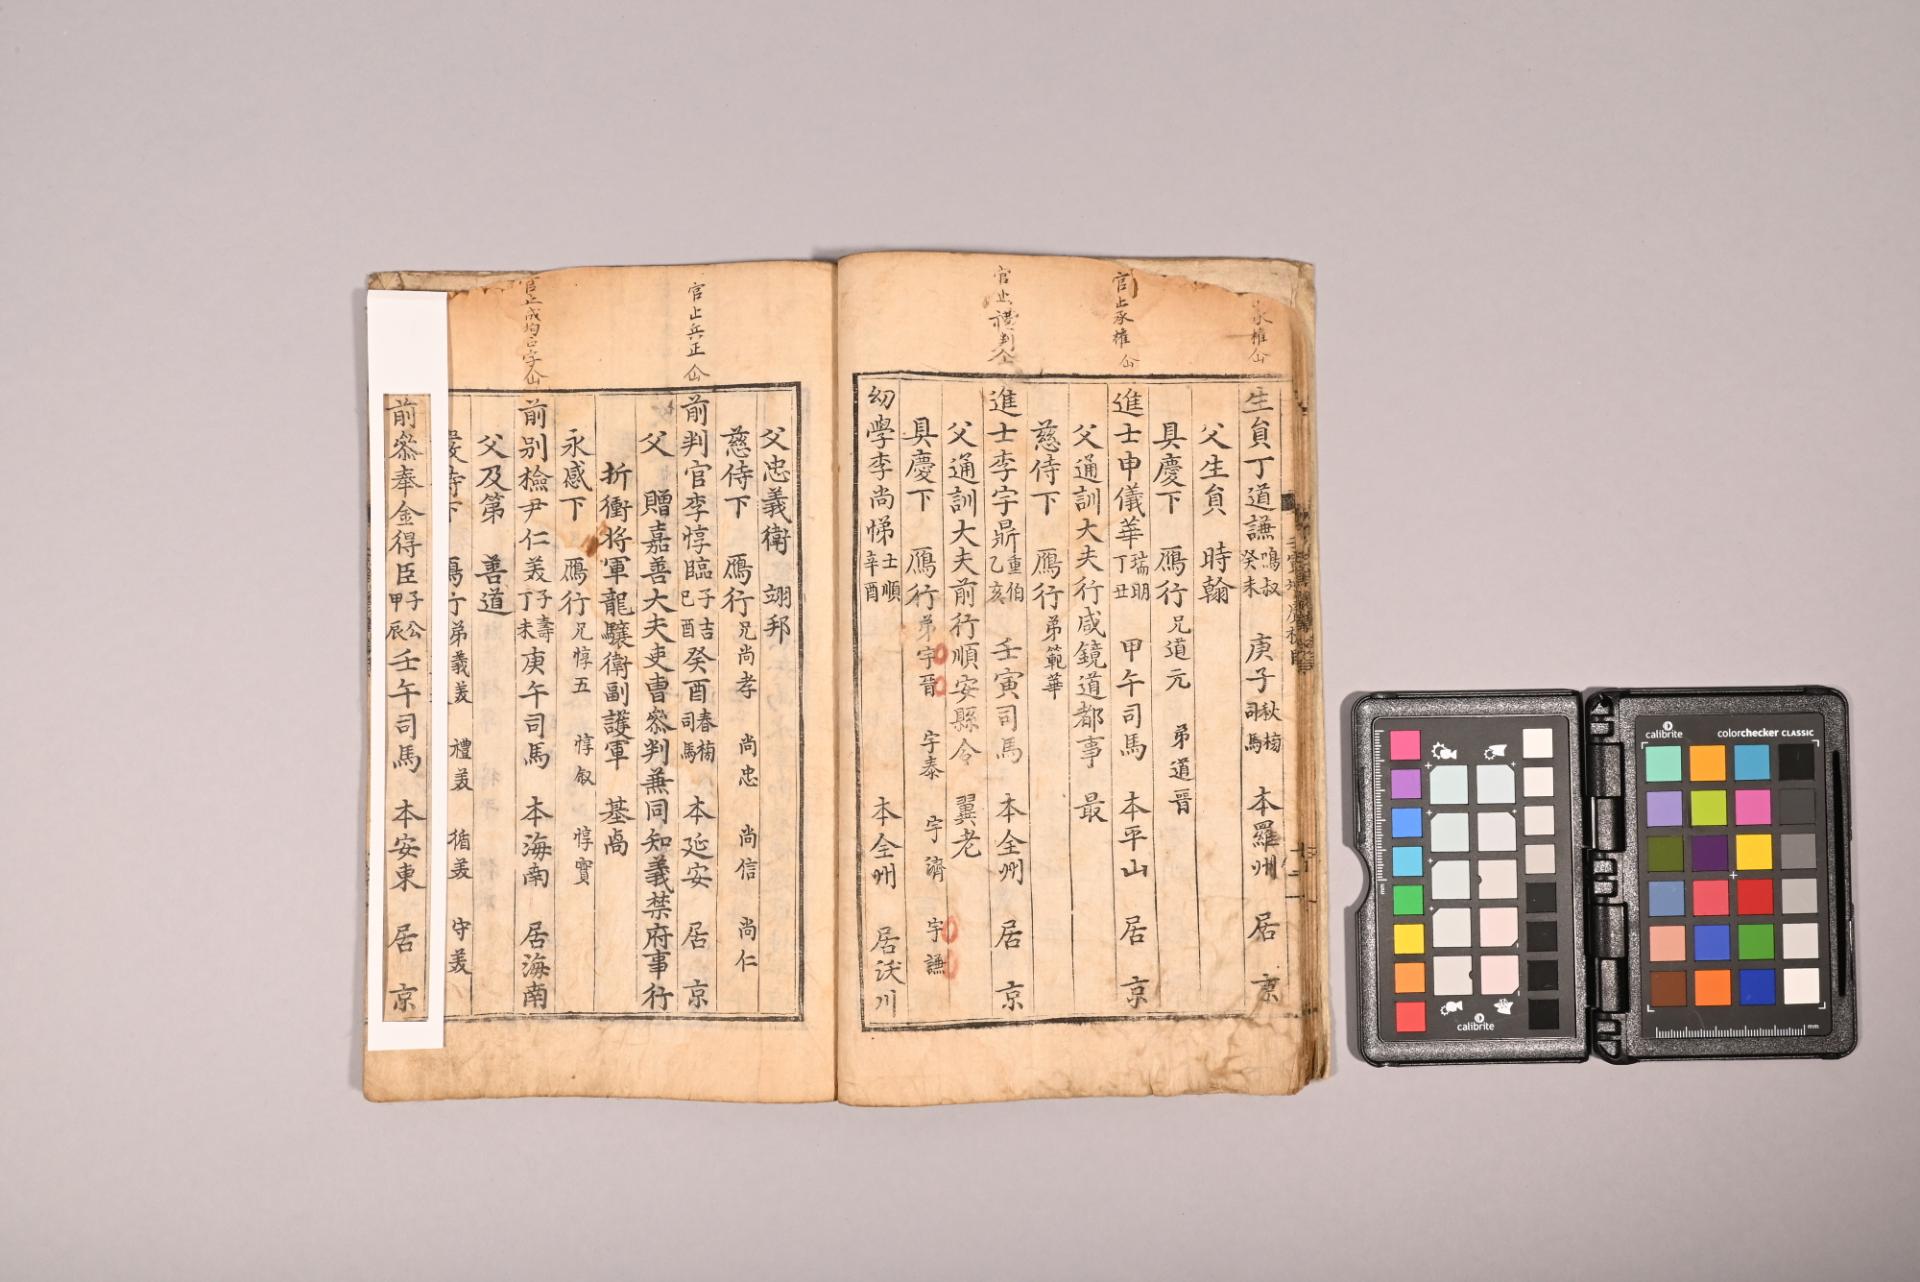 永椎仚
官止承椎仚
官止禮判仚
生貟丁道謙鳴叔癸未 庚子秋槝司馬 本羅州 居 京
父生貟 時翰
具慶下 鴈行兄道元 弟道晉
進士申儀華瑞明丁丑 甲午司馬 本平山 居 京
父通訓大夫行咸鏡道都事 最
慈侍下 鴈行弟範華
進士李宇鼎重伯乙亥 壬寅司馬 本全州 居 京
父通訓大夫前行順安縣令 翼老
具慶下 鴈行弟宇晉 宇泰 宇濟 宇謙
幼學李尚悌士順辛酉 本全州 居沃川
官止兵正仚
父忠義衛 翊邦
慈侍下 鴈行兄尚孝 尚忠 尚信 尚仁
前判官李惇臨子吉己酉 癸酉春 司馬 本延安 居 京
父 贈嘉善大夫吏曹叅判兼同知義禁府事行
折衝将軍龍驤衛副護軍 基卨
永感下 鴈行兄惇五 惇叙 惇寶
前別檢尹仁美子壽丁未 庚午司馬 本海南 居海南
父及第 善道
嚴侍下 鴈行弟義美 禮美 循美 守美
前叅奉金得臣子公甲辰 壬午司馬 本安東 居 京
calibrite
calibrite
colorchecker CLASSIC
mm